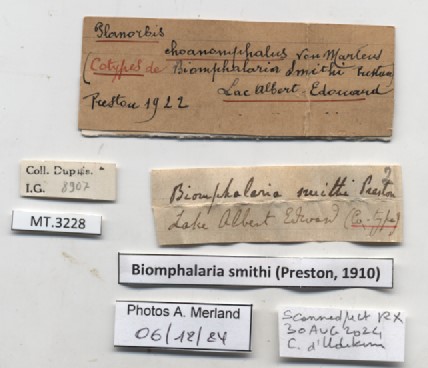 Planorbis
choanomphalus von Martens
(Cotypes de Biomphalaria smithi Preston)
Lac Albert Edouard
Preston 1922
Coll. Dupuis.
I.G. 8907
MT.3228
2
Biomphalaria smithi Preston
Lake Albert Edward (Co-types)
Biomphalaria smithi (Preston, 1910)
Photos A. Merland
06/12/24
30 AUG 2024
C. d'Udekem